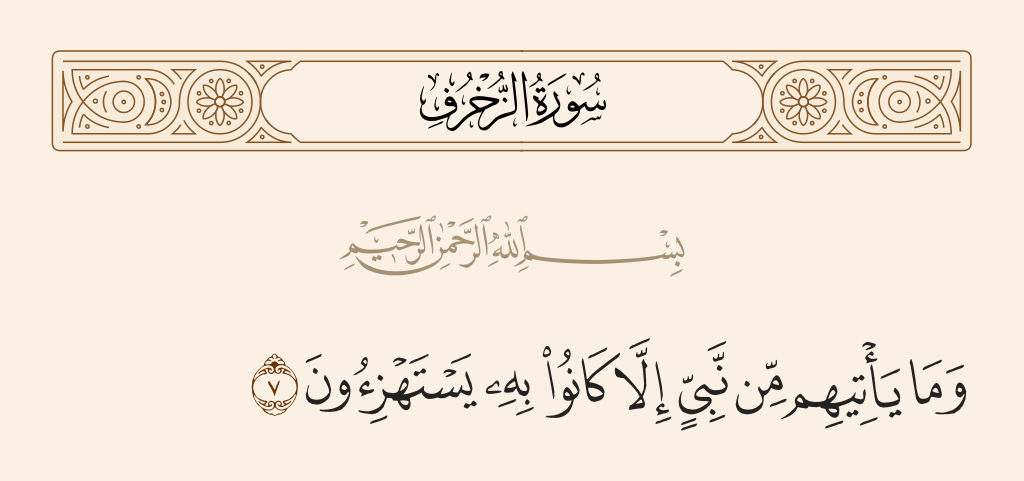 سُورَةُ الزُّخْرُفِ
بِسْمِ ٱللَّهِ ٱلرَّحْمَٰنِ ٱلرَّحِيمِ
وَمَا يَأْتِيهِم مِّن نَّبِيٍّ إِلَّا كَانُوا۟ بِهِۦ يَسْتَهْزِءُونَ ٧